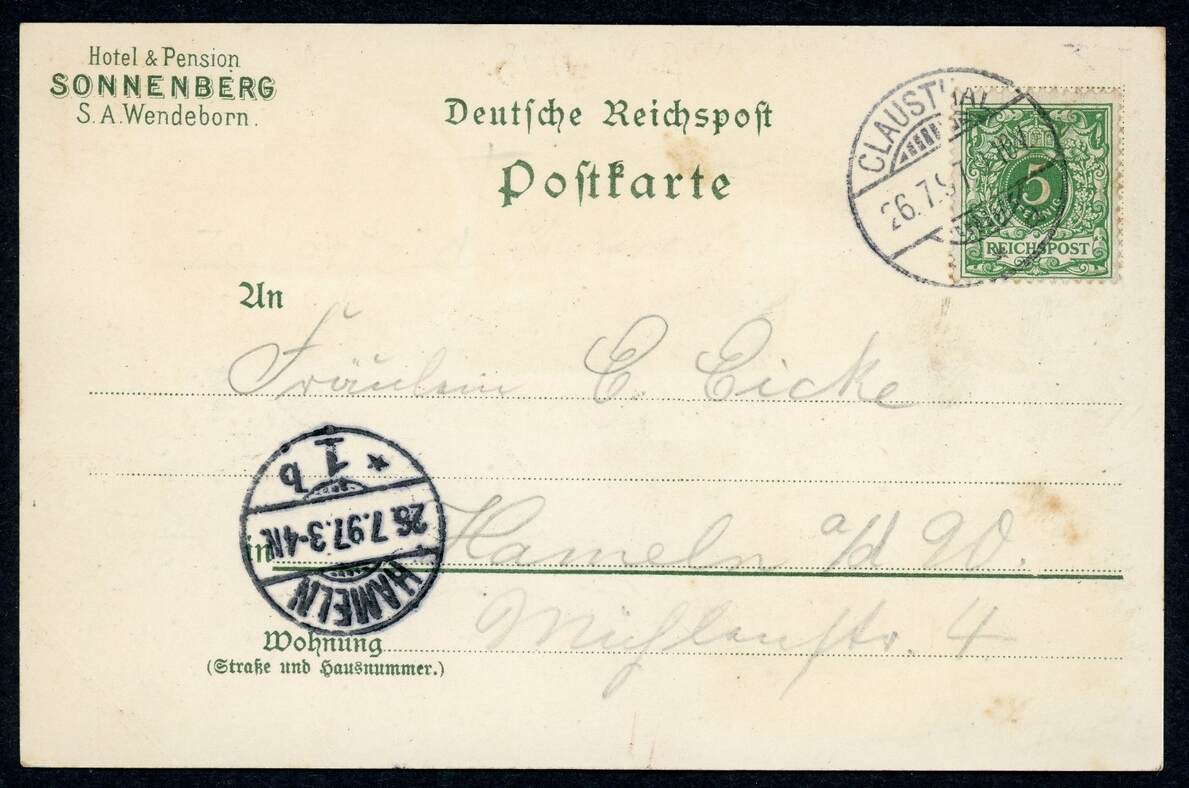 Hotel & Pension
SONNENBERG
S. A. Wendeborn.
Deutsche Reichspost
Postkarte
CLAUSTHAL
26.7.97
5
PFENNIG
REICHSPOST
An
Fräulein C. Eicke
1 b
26.7.97.3-4N.
HAMELN
in Hameln a/d W.
Wohnung Mühlenstr. 4
(Straße und Hausnummer.)